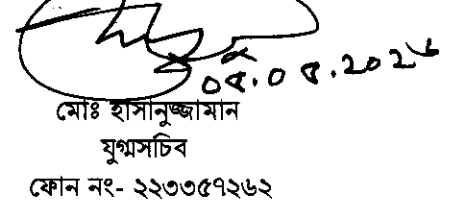 ০৫.০৫.২০২৬
মোঃ হাসানুজ্জামান
যুগ্মসচিব
ফোন নং- ২২৩৩৫৭২৬২